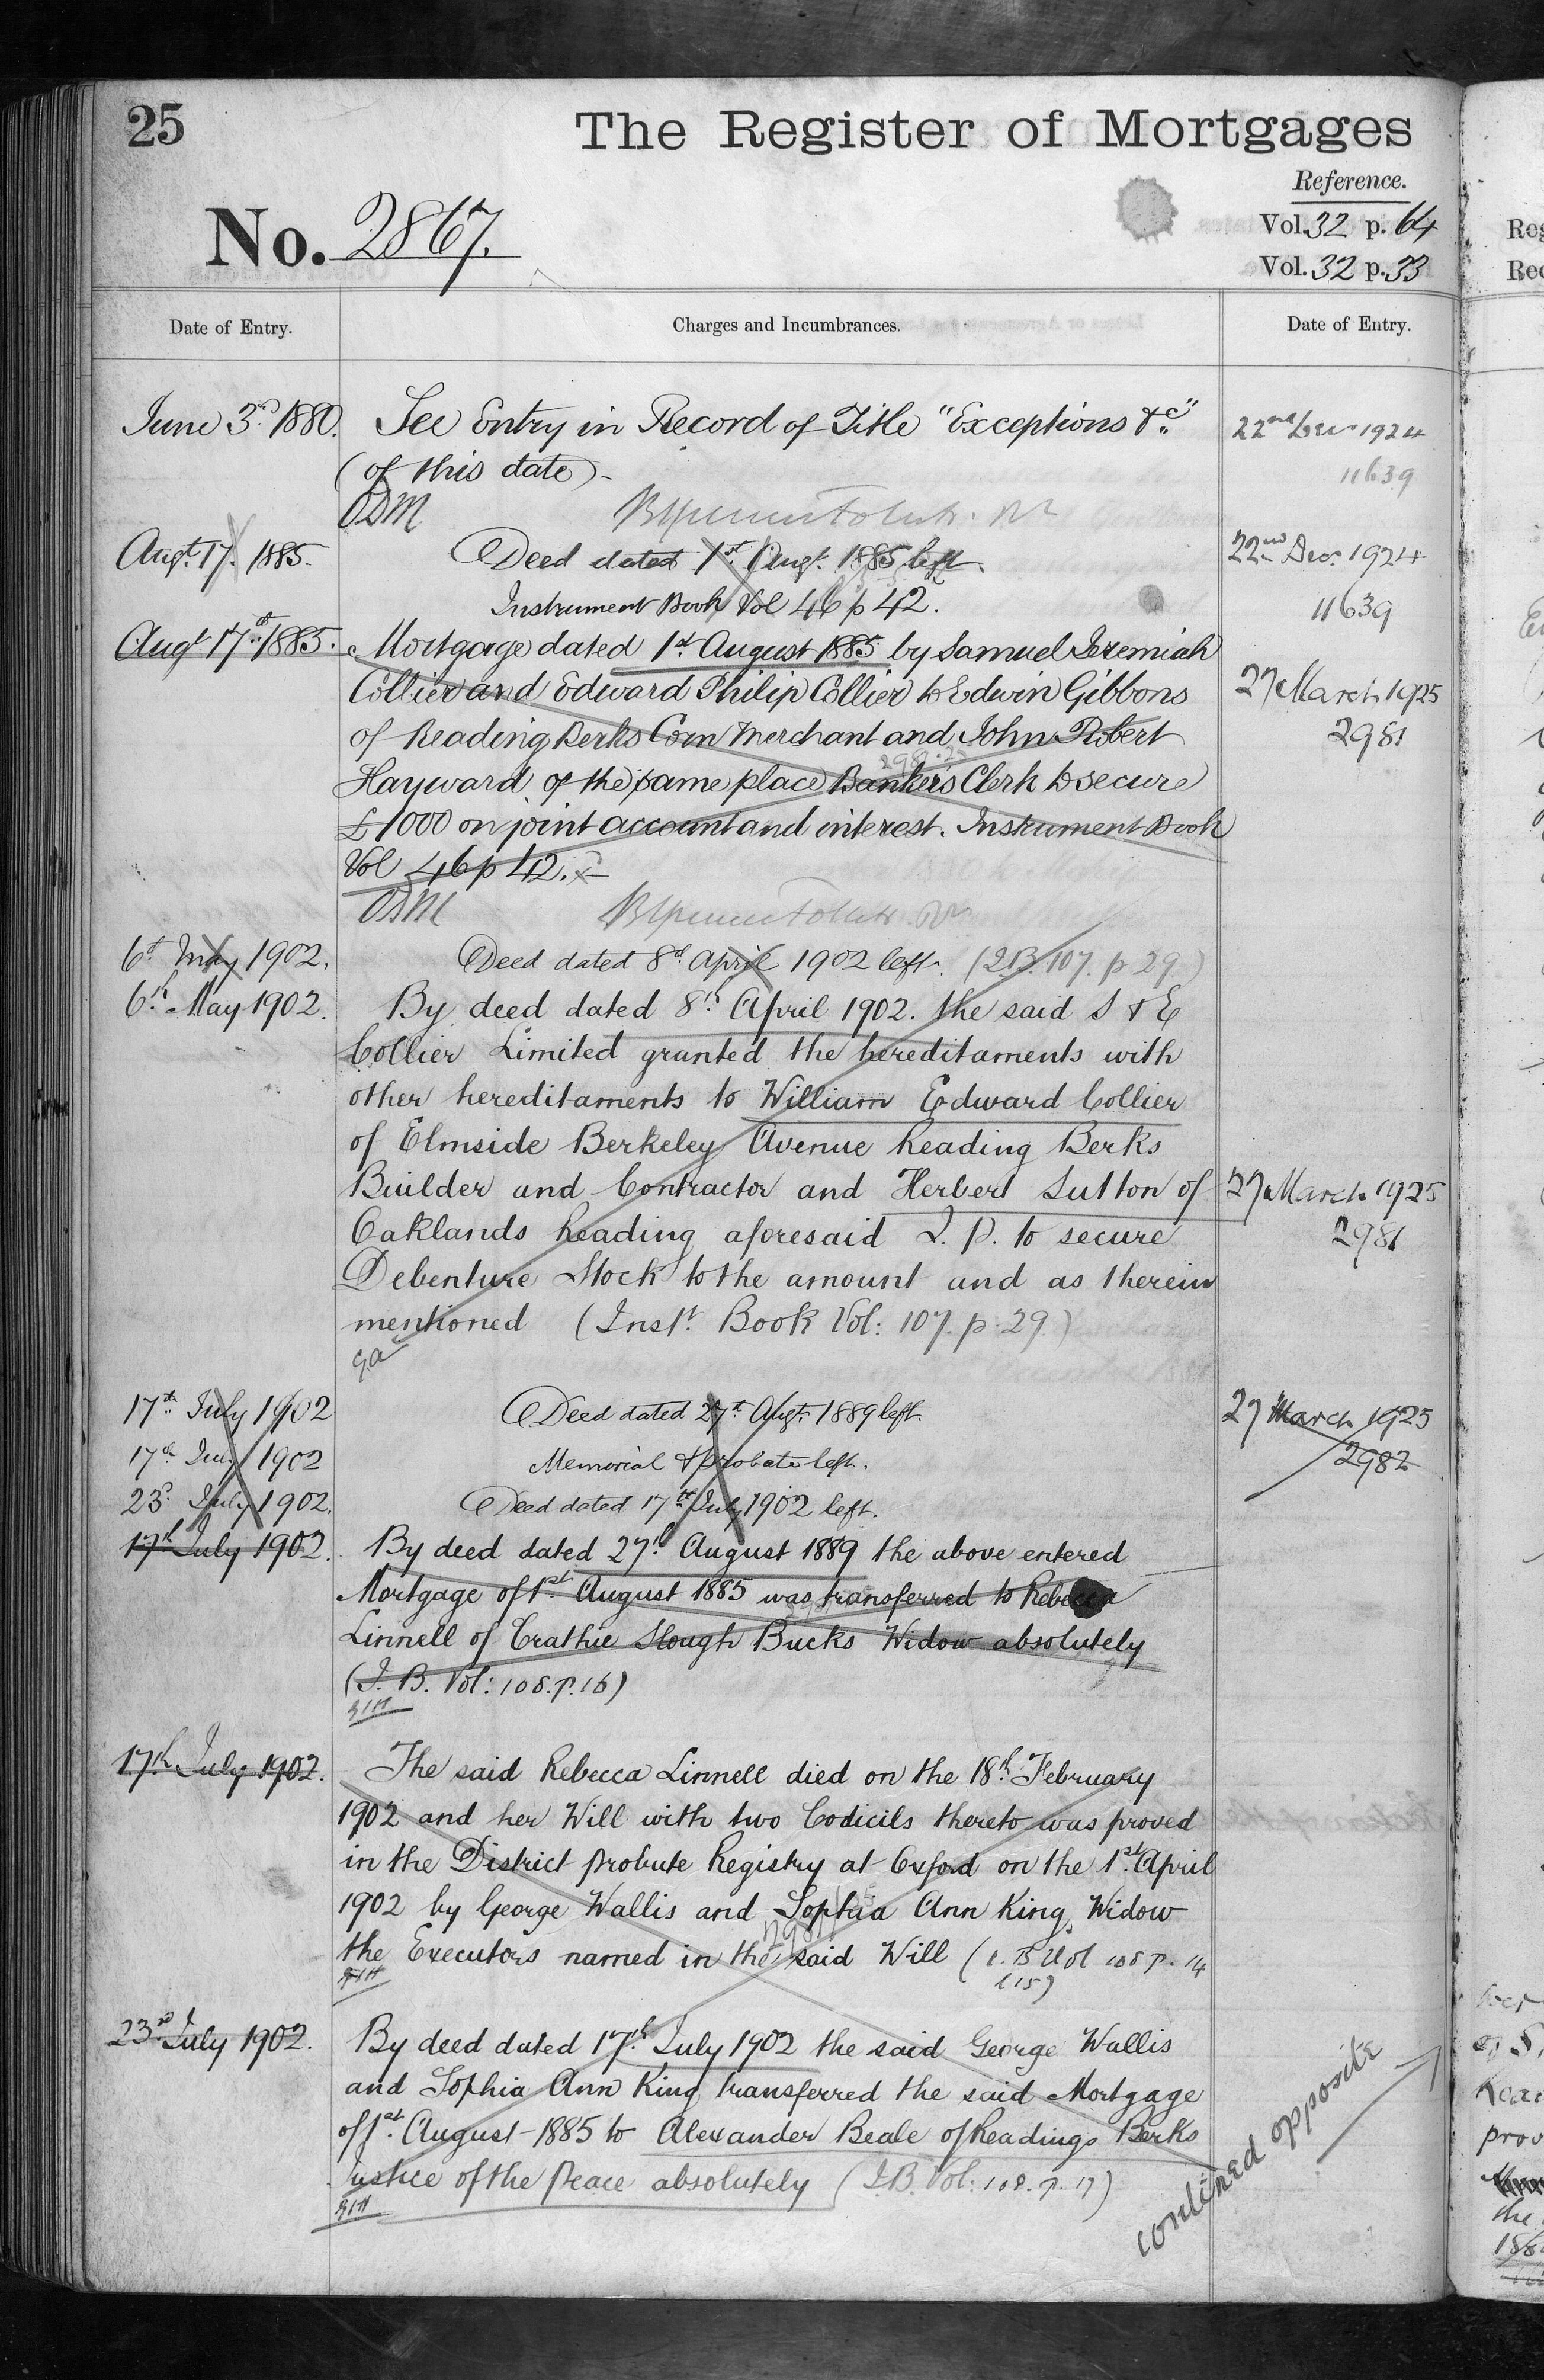 25
The Register of Mortgages
Reference.
No. 2867.
Vol. 32 p. 64
Vol. 32 p. 33
Date of Entry.
Charges and Incumbrances.
Date of Entry.
June 3rd 1880.
See Entry in Record of Title "Exceptions &c"
(of this date)-
ODM
Augt. 17. 1885.
Deed dated 1st Augt. 1885 left.
Instrument Book Vol 46 p 42.
Augt 17th 1885.
Mortgage dated 1st August 1885 by Samuel Jeremiah
Collier and Edward Philip Collier to Edwin Gibbons
of Reading Berks Corn Merchant and John Robert
Hayward of the same place Bankers Clerk to secure
£1000 on joint account and interest. Instrument Book
Vol 46 p 42.
ODM
6th May 1902.
Deed dated 8th April 1902 left. (2B. 107. p 29.)
6th May 1902.
By deed dated 8th April 1902. the said S & E
Collier Limited granted the hereditaments with
other hereditaments to William Edward Collier
of Elmside Berkeley Avenue Reading Berks
Builder and Contractor and Herbert Sutton of
Oaklands Reading aforesaid J. P. to secure
Debenture Stock to the amount and as therein
mentioned (Inst. Book Vol: 107. p. 29.)
17th July 1902
Deed dated 27th Augt. 1889 left.
17th July 1902
Memorial & probate left.
23rd July 1902.
Deed dated 17th July 1902 left.
17th July 1902.
By deed dated 27th August 1889 the above entered
Mortgage of 1st August 1885 was transferred to Rebecca
Linnell of Crathie Slough Bucks Widow absolutely
(I. B. Vol: 108. p. 16)
17th July 1902.
The said Rebecca Linnell died on the 18th February
1902 and her Will with two Codicils thereto was proved
in the District Probate Registry at Oxford on the 1st April
1902 by George Wallis and Sophia Ann King, Widow
the Executors named in the said Will (I. B Vol 108 p. 14
& 15)
23rd July 1902.
By deed dated 17th July 1902 the said George Wallis
and Sophia Ann King transferred the said Mortgage
of 1st August 1885 to Alexander Beale of Reading Berks
Justice of the Peace absolutely (I.B. Vol: 108. p. 17)
continued opposite
22nd Decr 1924
11639
22nd Decr 1924
11639
27 March 1925
2981
27 March 1925
2981
27 March 1925
2982